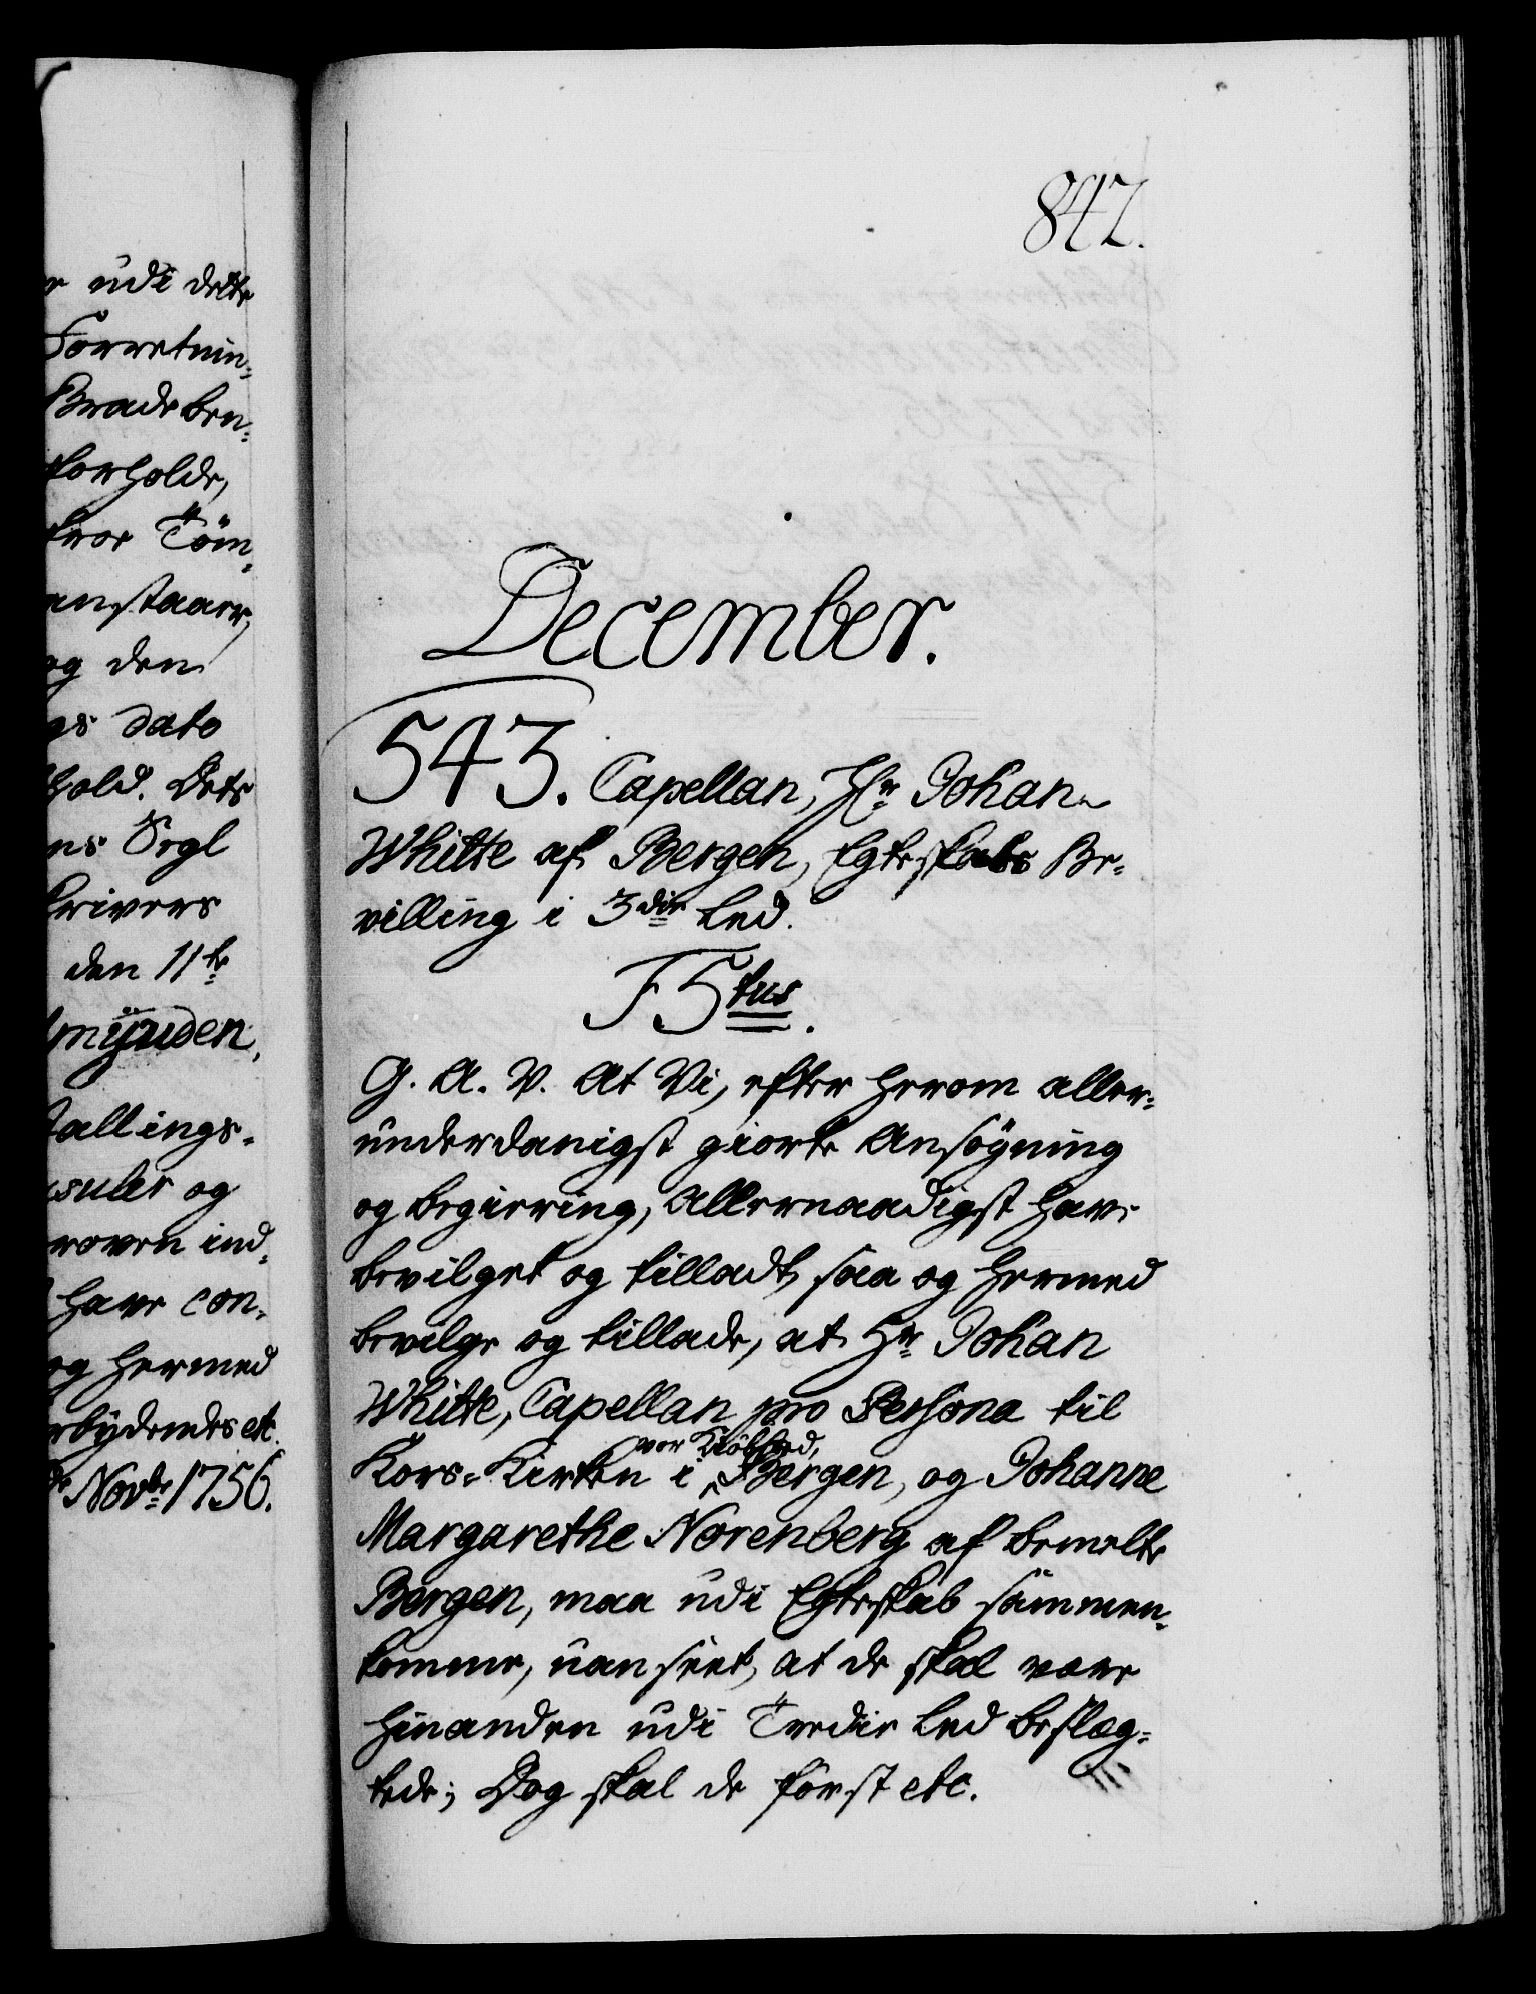 r udi dette
Forretnin-
Brade ben-
forholde,
tvor Töm-
anstaaer,
og den
gs dato
hold. Dets
ns Segl
skrivers
den 11te
myuden,
tallings-
suler og
roven ind-
have con-
og hermed
rbydendes etc.
Novbr 1756.
842.
December.
543. Capellan, Hr Johan
Whitte af Bergen, Egteskabs Be-
villing i 3die Led.
F 5tus.
G. A. V. At Vi, efter herom aller-
underdanigst giorte Ansögning
og begiering, Allernaadigst have
bevilget og tilladt, saa og hermed
bevilge og tillade, at Hr Johan
Whitte, Capellan pro Persona til
vor Kiöbsted,
Kors-Kirken i Bergen, og Johanne
Margarethe Norenberg af bemelte
Bergen, maa udi Egteskab sammen-
komme, uanseet, at de skal være
hinanden udi Tredie Led beslæg-
tede; Dog skal de först etc.